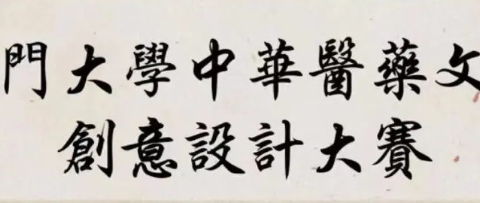 門大學中華醫藥文
創意設計大賽